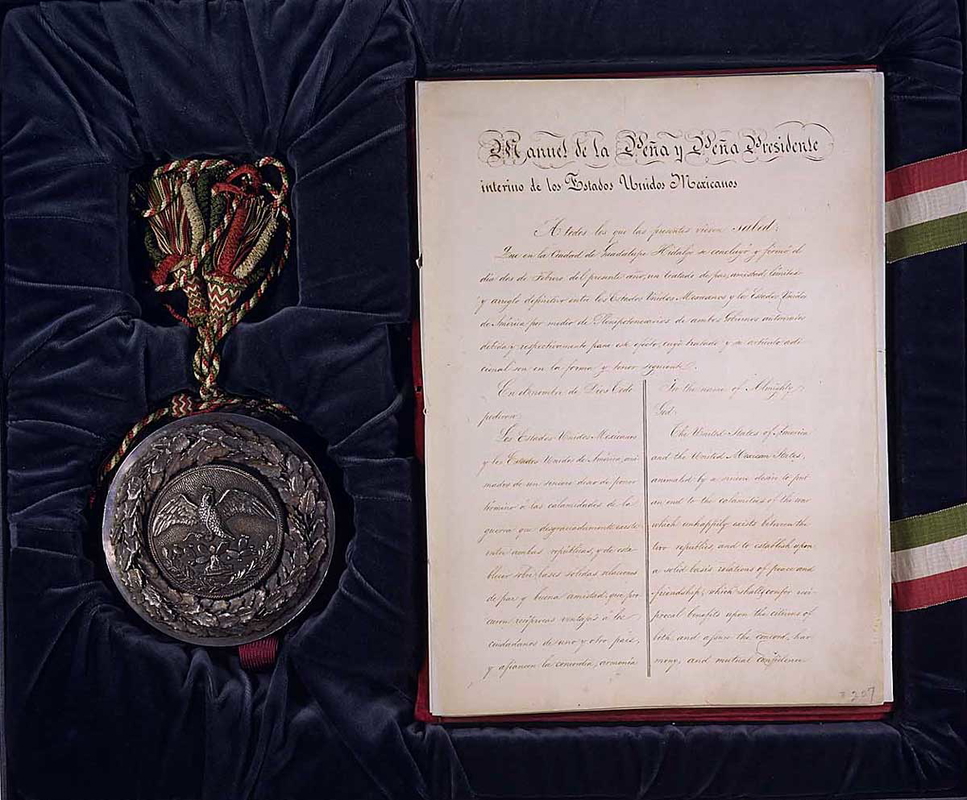 Manuel de la Peña y Peña Presidente
interino de los Estados Unidos Mexicanos
A todos los que las presentes vieren sabed:
Que en la Ciudad de Guadalupe Hidalgo se concluyó y firmó el
dia dos de Febrero del presente año, un tratado de paz, amistad, límites
y arreglo definitivo entre los Estados Unidos Mexicanos y los Estados Unidos
de América por medio de Plenipotenciarios de ambos Gobiernos autorizados
debida y respectivamente para este efecto, cuyo tratado y su artículo adi-
cional son en la forma y tenor siguiente.
En el nombre de Dios Todo-
poderoso:
Los Estados Unidos Mexicanos
y los Estados Unidos de América, ani-
mados de un sincero deseo de poner
término á las calamidades de la
guerra que desgraciadamente existe
entre ambas repúblicas, y de esta-
blecer sobre bases sólidas relaciones
de paz y buena amistad, que pro-
curen recíprocas ventajas á los
ciudadanos de uno y otro pais,
y afiancen la concordia, armonía
In the name of Almighty
God:
The United States of America
and the United Mexican States,
animated by a sincere desire to put
an end to the calamities of the war
which unhappily exists between the
two republics, and to establish upon
a solid basis relations of peace and
friendship, which shall confer reci-
procal benefits upon the citizens of
both, and assure the concord, har-
mony, and mutual confidence
207